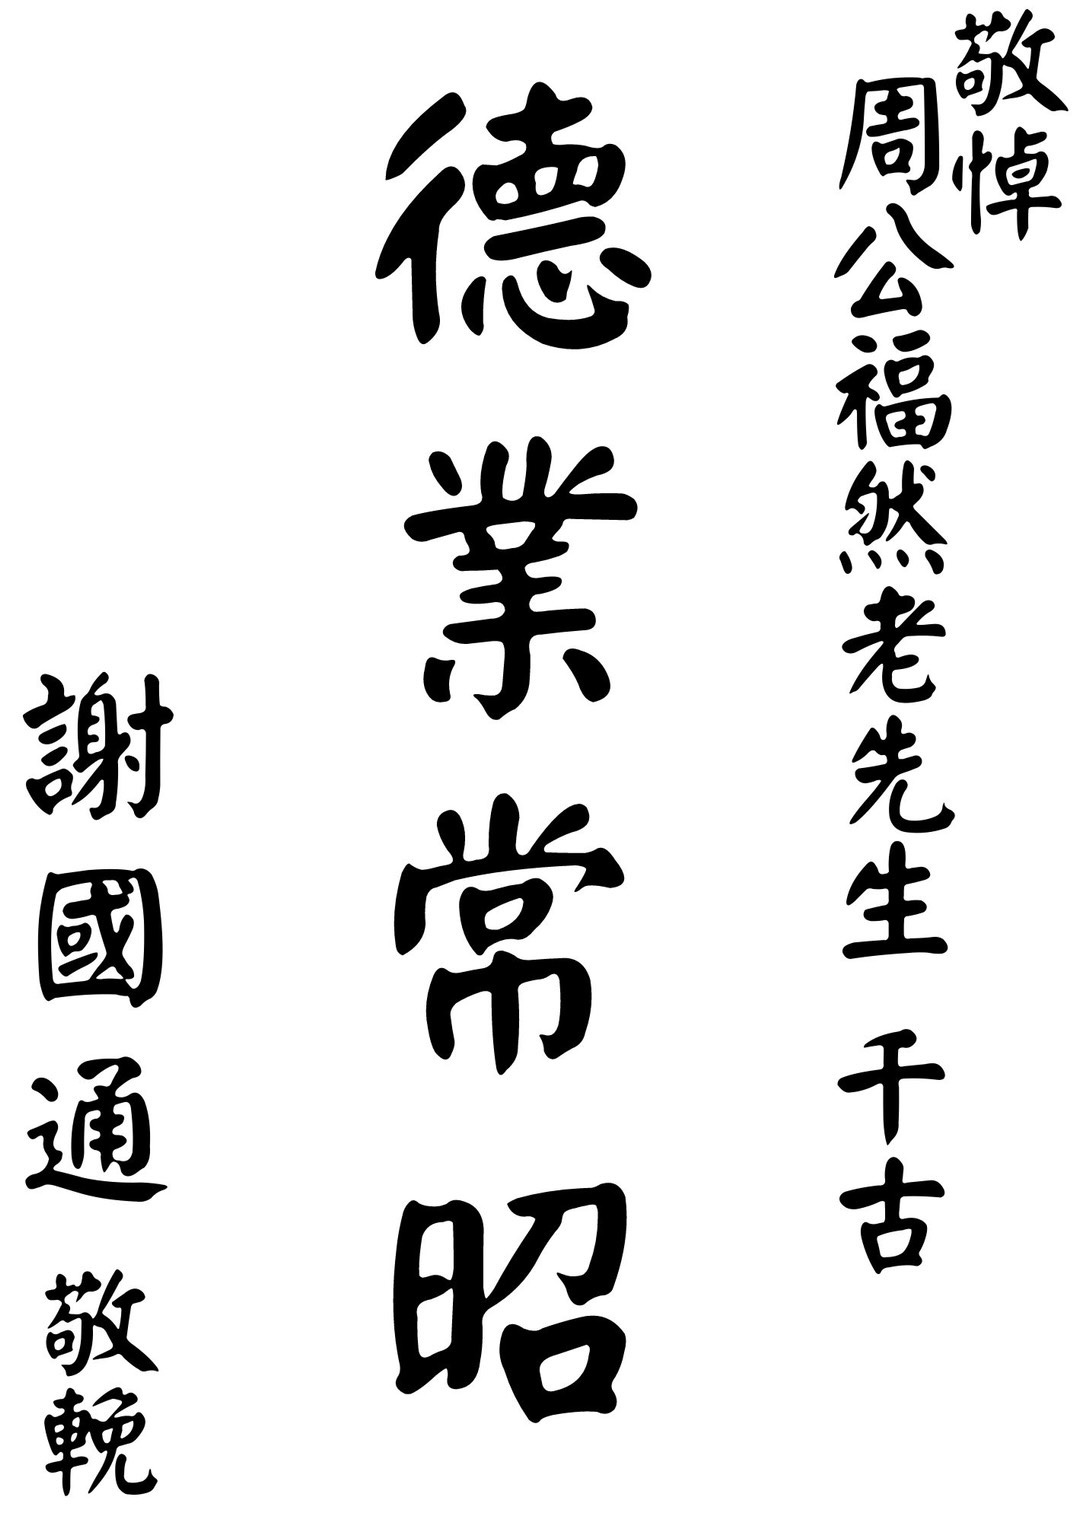 敬悼
周公福然老先生 千古
德業常昭
謝國通 敬輓